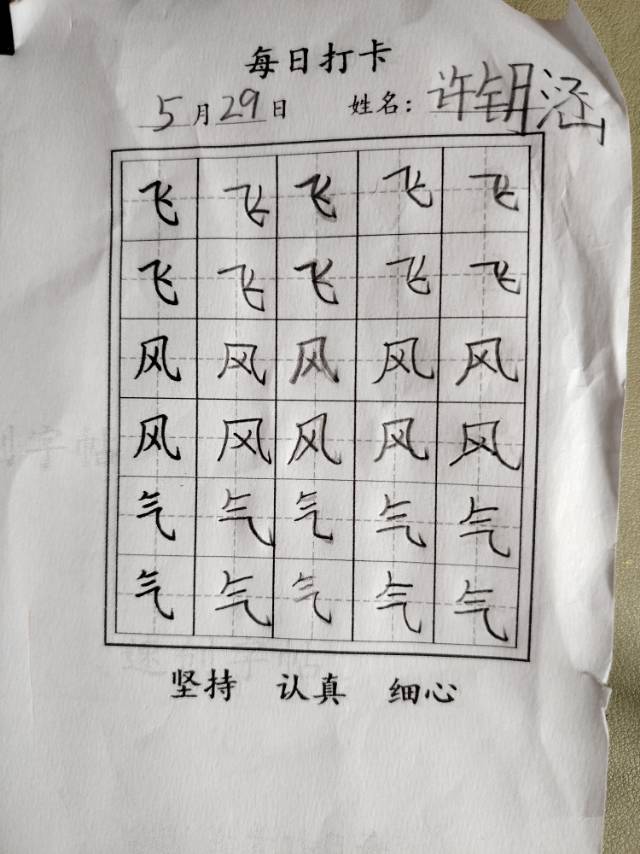 每日打卡
5月29日 姓名：许钥涵
飞飞飞飞飞
飞飞飞飞飞
风风风风风
风风风风风
气气气气气
气气气气气
坚持 认真 细心